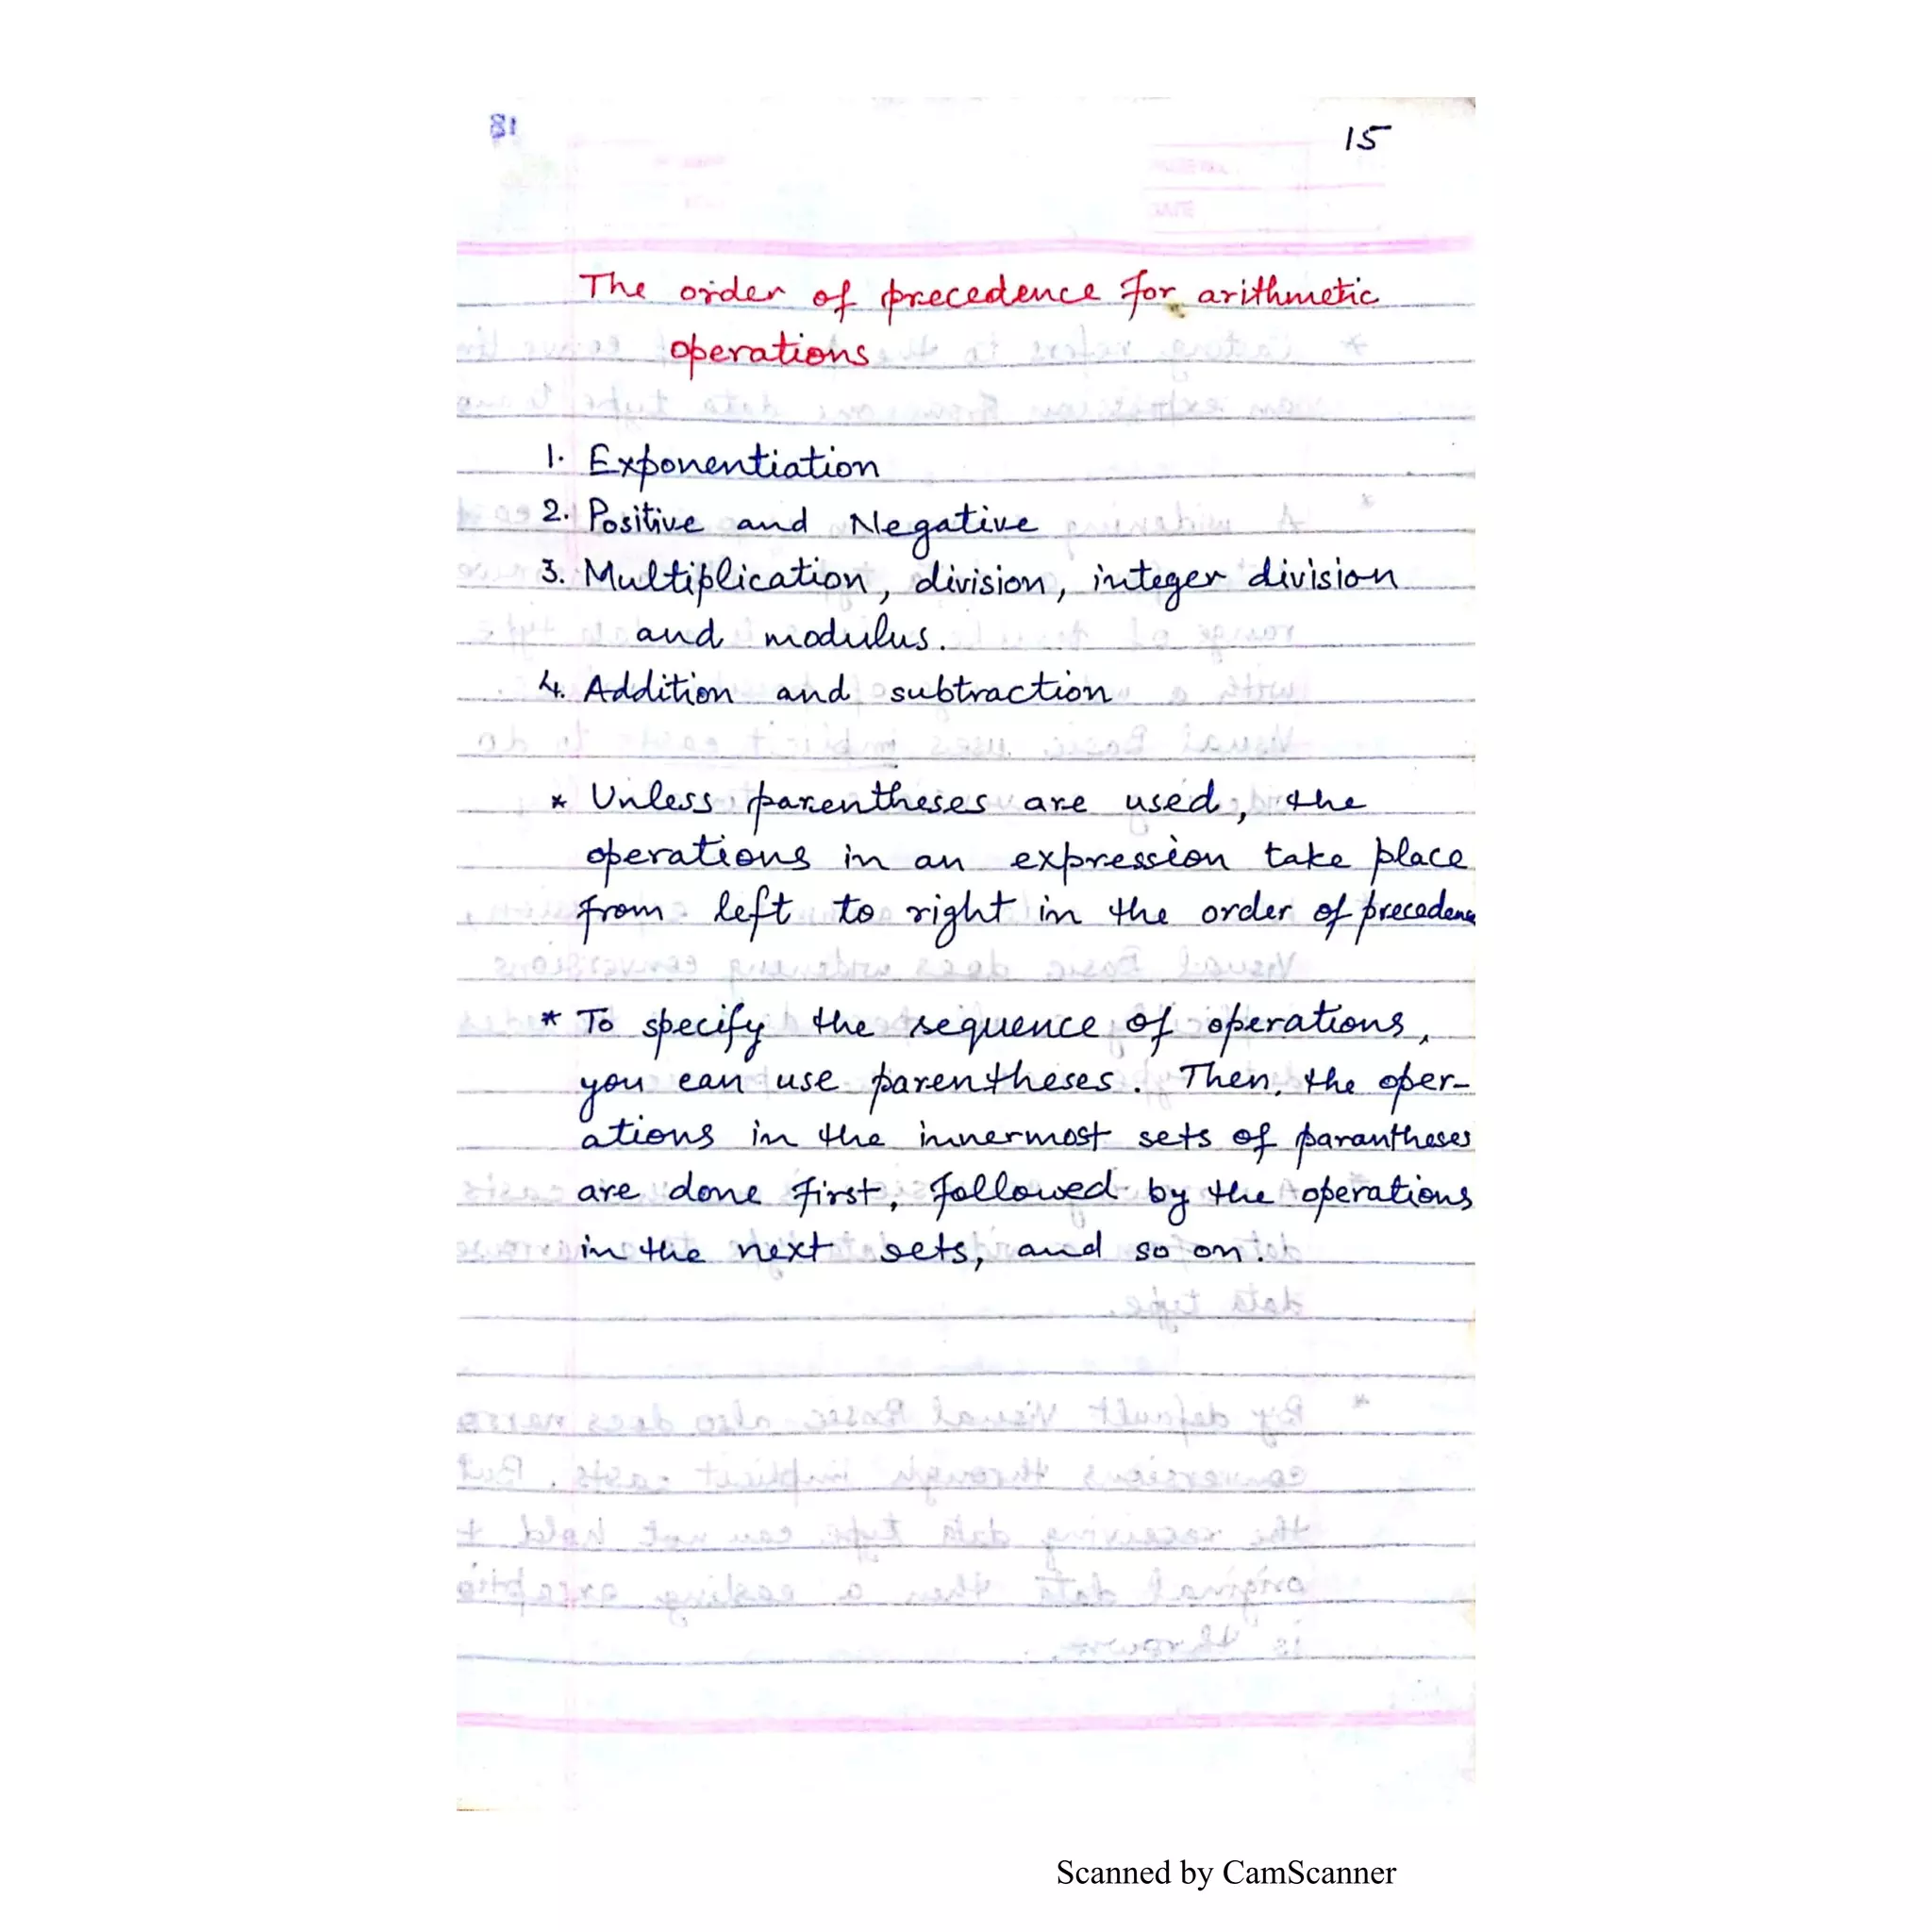 15
The order of precedence for arithmetic
operations
1. Exponentiation
2. Positive and Negative
3. Multiplication, division, integer division
and modulus.
4. Addition and subtraction
* Unless parentheses are used, the
operations in an expression take place
from left to right in the order of precedence
* To specify the sequence of operations,
you can use parentheses. Then, the oper-
ations in the innermost sets of parantheses
are done first, followed by the operations
in the next sets, and so on.
Scanned by CamScanner